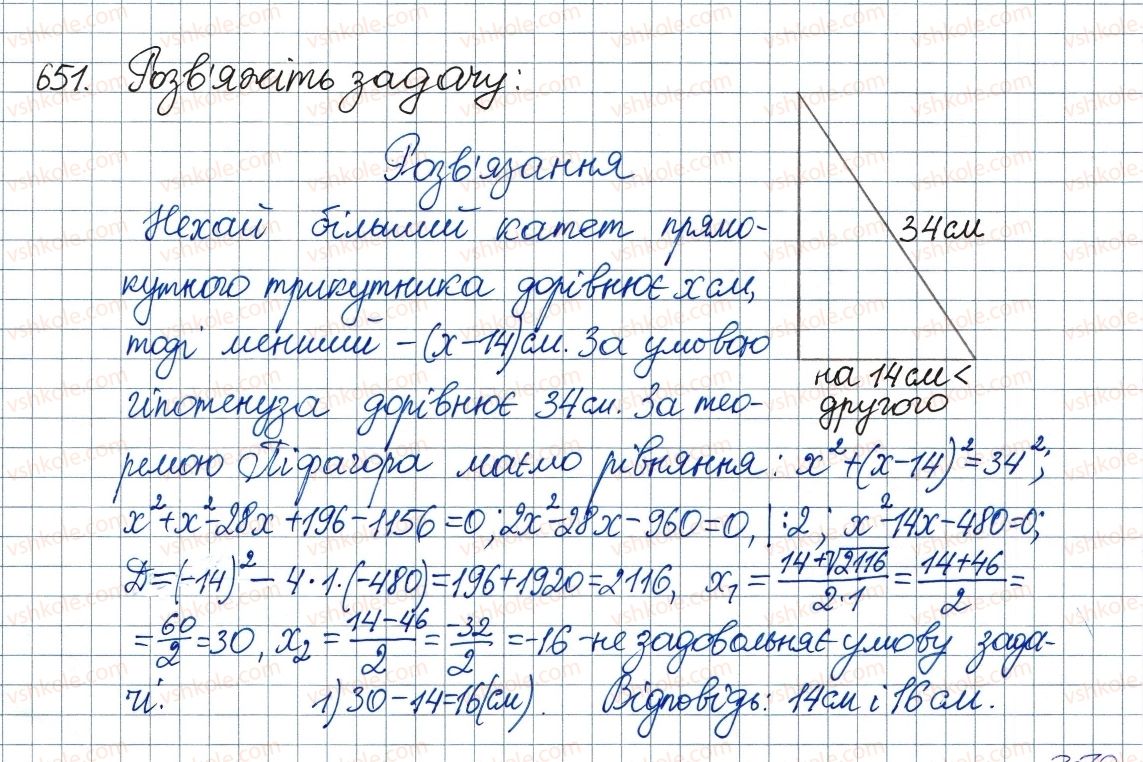 651. Розв'яжіть задачу:
Розв'язання
Нехай більший катет прямо-
кутного трикутника дорівнює x см,
тоді менший – (x – 14) см. За умовою
гіпотенуза дорівнює 34 см. За тео-
ремою Піфагора маємо рівняння: x² + (x – 14)² = 34²;
x² + x² – 28x + 196 – 1156 = 0; 2x² – 28x – 960 = 0, | :2; x² – 14x – 480 = 0;
D = (–14)² – 4 · 1 · (–480) = 196 + 1920 = 2116, x₁ = (14 + √2116)/(2·1) = (14 + 46)/2 =
= 60/2 = 30, x₂ = (14 – 46)/2 = –32/2 = –16 – не задовольняє умову зада-
чі. 1) 30 – 14 = 16 (см). Відповідь: 14 см і 16 см.
34 см
на 14 см <
другого